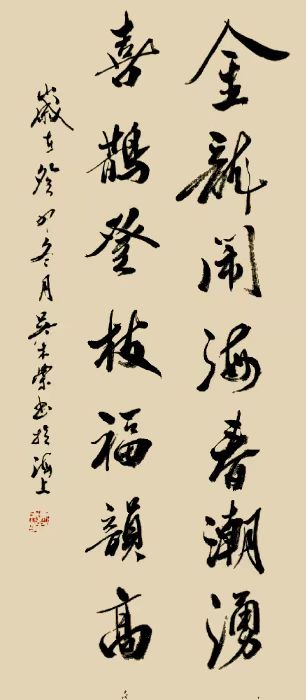 金龍鬧海春潮湧
喜鵲登枝福韻高
歲在癸卯冬月吴木榮书於海上